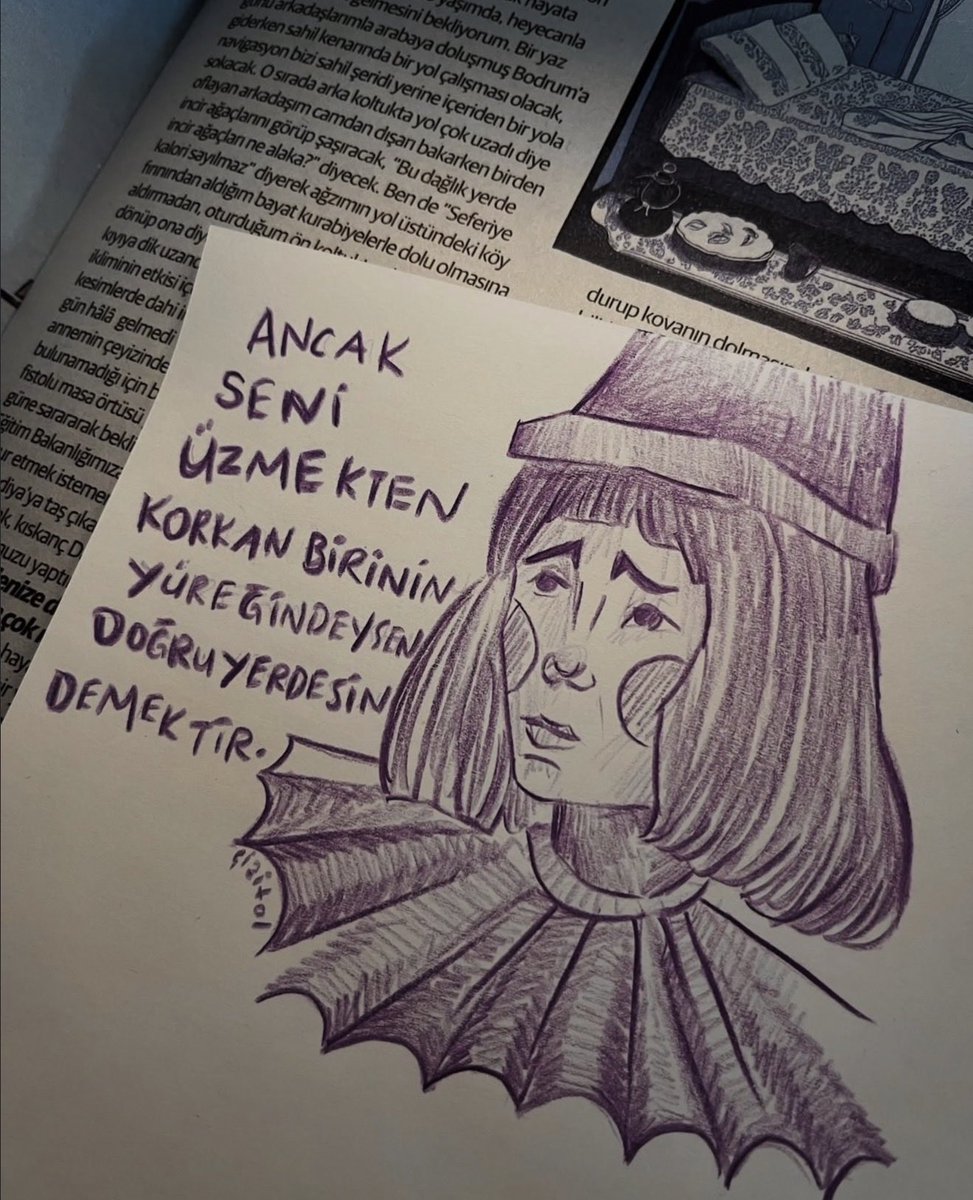 yaşımda, heyecanla
günü arkadaşlarımla arabaya doluşmuş Bodrum'a
gelmesini bekliyorum. Bir yaz
giderken sahil kenarında bir yol çalışması olacak,
navigasyon bizi sahil şeridi yerine içeriden bir yola
sokacak. O sırada arka koltukta yol çok uzadı diye
oflayan arkadaşım camdan dışarı bakarken birden
incir ağaçlarını görüp şaşıracak, "Bu dağlık yerde
incir ağaçları ne alaka?" diyecek. Ben de "Seferiye
kalori sayılmaz" diyerek ağzımın yol üstündeki köy
fırınından aldığım bayat kurabiyelerle dolu olmasına
aldırmadan, oturduğum ön
dönüp ona
kıyıya dik
ikliminin etkisi
kesimlerde dahi
gün hâlâ gelmedi
annemin çeyizinde
bulunamadığı için
fistolu masa örtüsü
güne sararak
Bakanlığımıza
etmek
taş
kıskanç
yaptı
durup kovanın
ANCAK
SENİ
ÜZMEKTEN
KORKAN BİRİNİN
YÜREĞİNDEYSEN
DOĞRU YERDESİN
DEMEKTİR.
çizitol